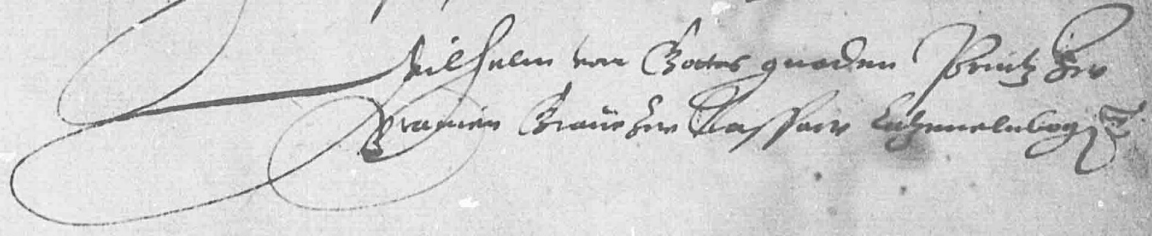 Wilhelm von Gottes gnaden Printz zu
Uranien Graue zu Nassaw Catzenelnbog